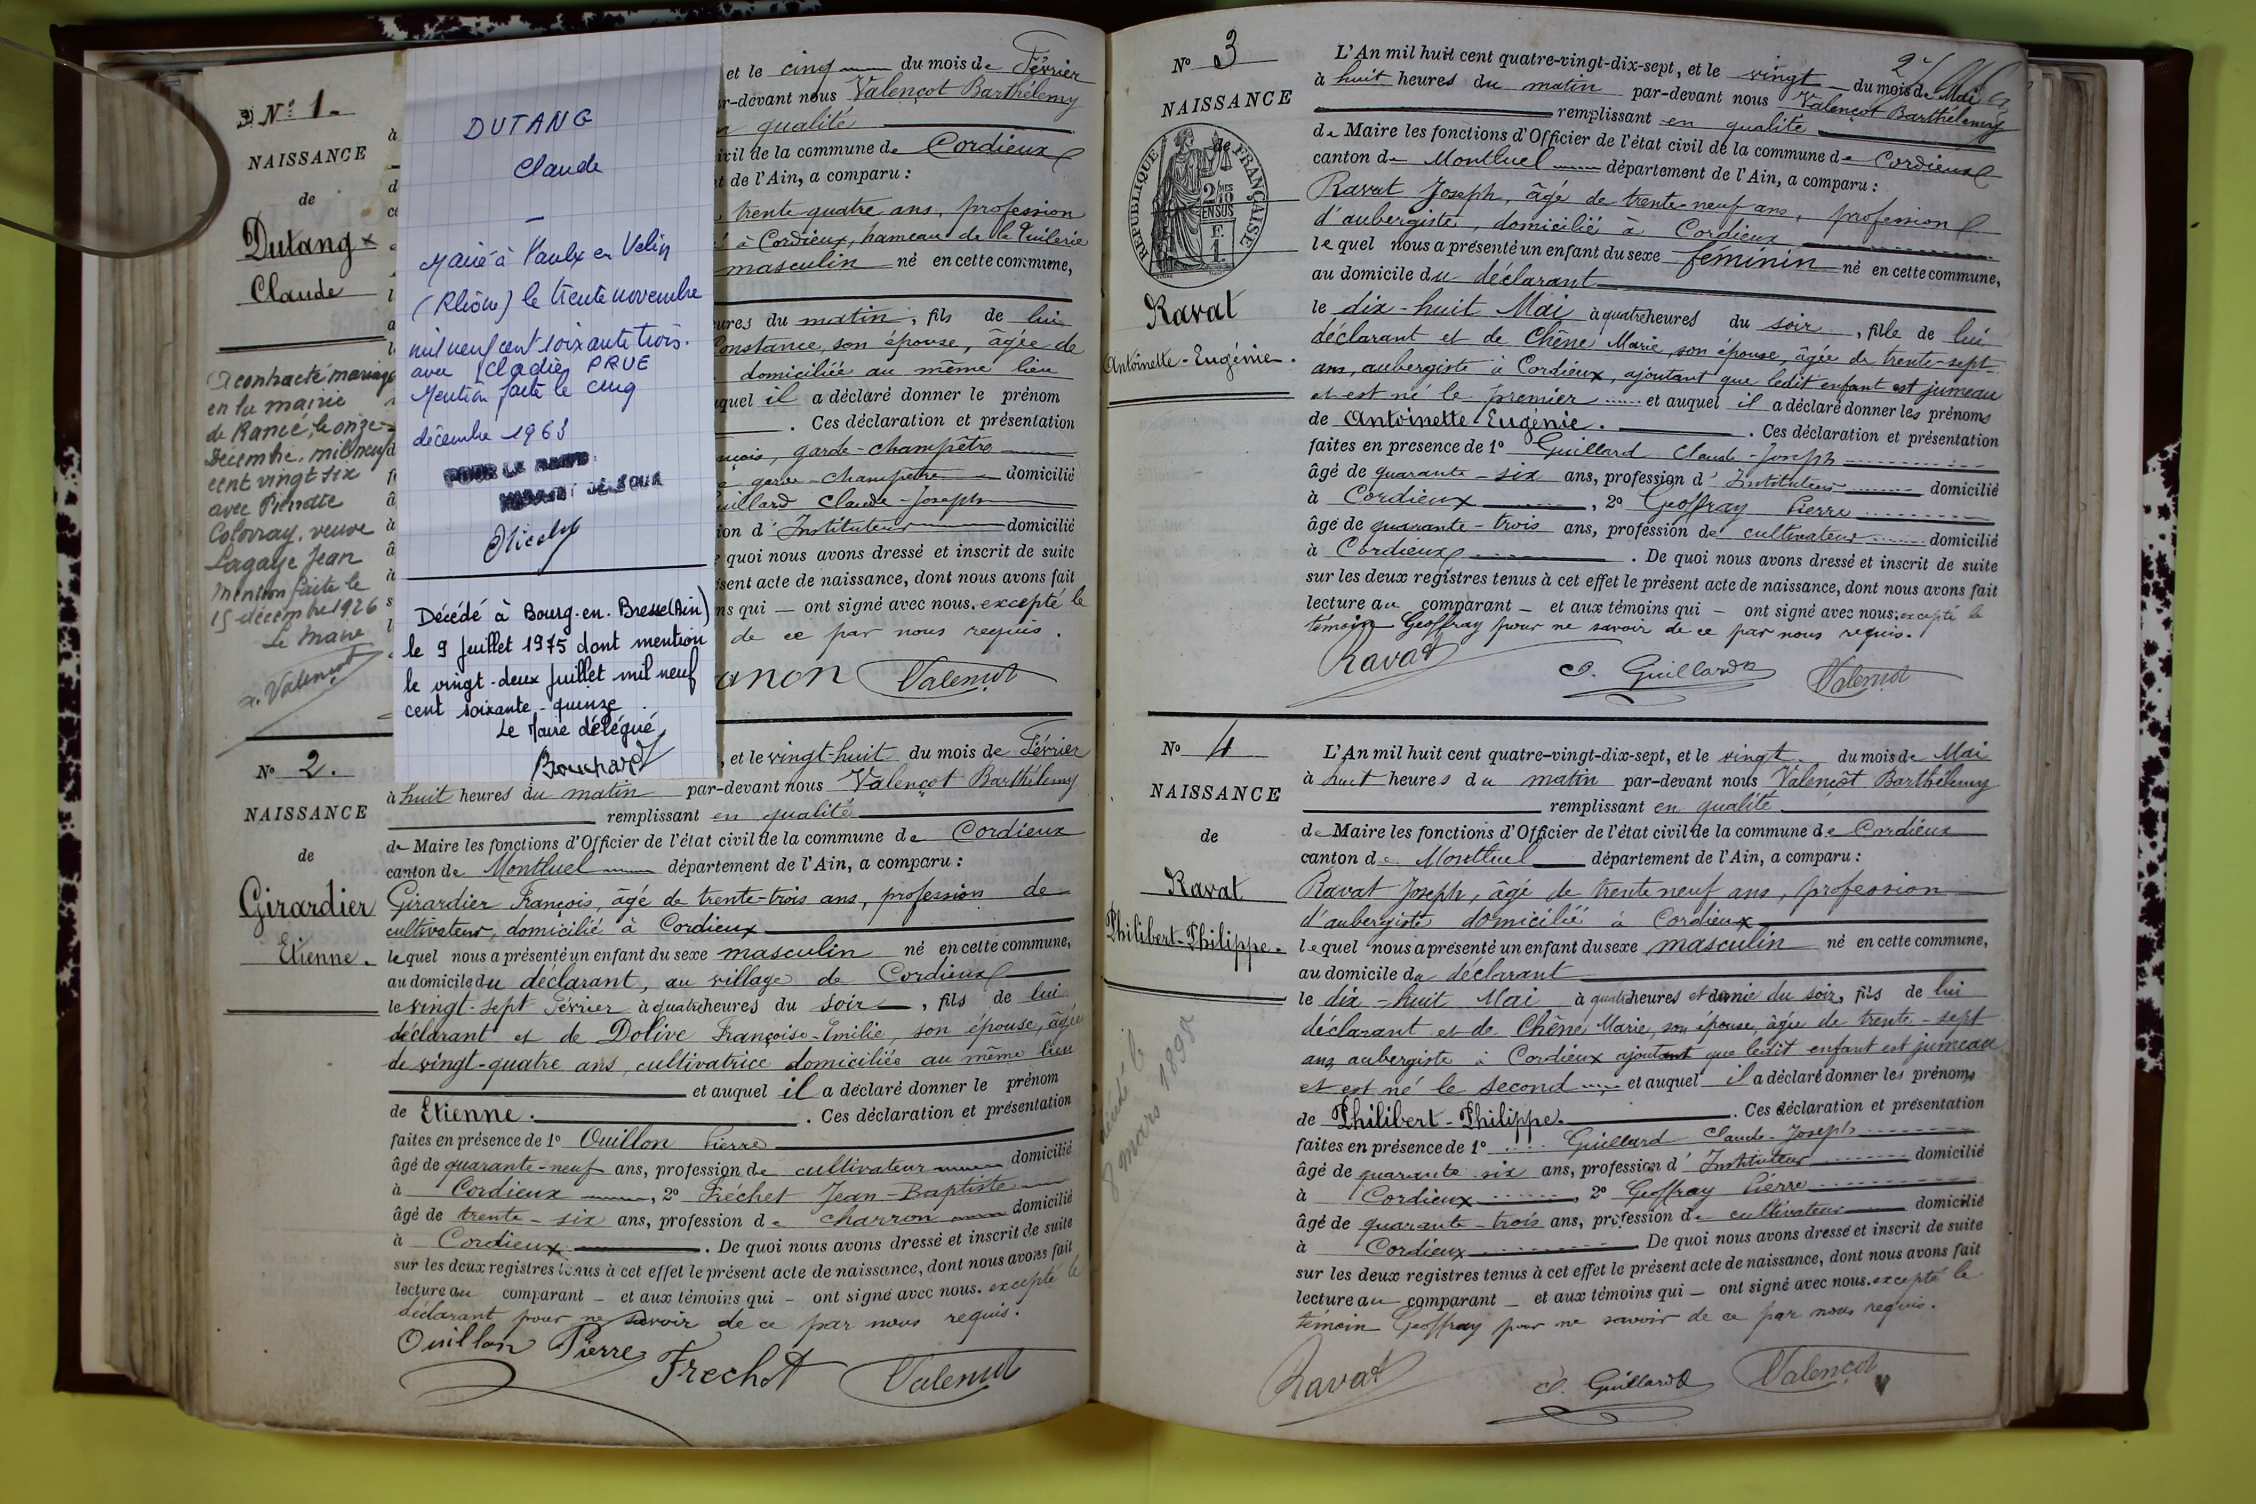 N° 1.
NAISSANCE
de
Dutang x
Claude
A contracté mariage
en la mairie
de Rancé, le onze
Décembre, mil neuf
cent vingt six
avec Pierrette
veuve
Lagaye Jean
Mention faite le
15 décembre 1926
Le Maire
Valençot
DUTANG
Claude
Marié à Vaulx en Velin
(Rhône) le trente novembre
mil neuf cent soixante trois.
avec Claudie PRUE
Mention faite le cinq
décembre 1963
POUR LE MAIRE
Décédé à Bourg-en-Bresse (Ain)
le 9 juillet 1975 dont mention
le vingt-deux juillet mil neuf
cent soixante-quinze.
Le Maire délégué
Bouchard
et le cinq du mois de Février
r-devant nous Valençot Barthélemy
qualité
ivil de la commune de Cordieux
t de l'Ain, a comparu :
trente-quatre ans, profession
à Cordieux, hameau de la Tuilerie
masculin né en cette commune,
ures du matin, fils de lui
Constance, son épouse, âgée de
domiciliée au même lieu
quel il a déclaré donner le prénom
. Ces déclaration et présentation
çois, garde-champêtre
garde-champêtre domicilié
uillard Claude-Joseph
ion d'Instituteur domicilié
e quoi nous avons dressé et inscrit de suite
ésent acte de naissance, dont nous avons fait
ns qui — ont signé avec nous. excepté le
de ce par nous requis.
anon Valençot
N° 2.
NAISSANCE
de
Girardier
Etienne.
, et le vingt-huit du mois de Février
à huit heures du matin par-devant nous Valençot Barthélemy
remplissant en qualité
de Maire les fonctions d'Officier de l'état civil de la commune de Cordieux
canton de Montluel département de l'Ain, a comparu :
Girardier François, âgé de trente-trois ans, profession de
cultivateur, domicilié à Cordieux
lequel nous a présenté un enfant du sexe masculin né en cette commune,
au domicile du déclarant, au village de Cordieux
le vingt-sept Février à quatre heures du soir, fils de lui
déclarant et de Dolive Françoise-Emilie, son épouse, âgée
de vingt-quatre ans, cultivatrice domiciliée au même lieu
et auquel il a déclaré donner le prénom
de Etienne. . Ces déclaration et présentation
faites en présence de 1° Ouillon Pierre
âgé de quarante-neuf ans, profession de cultivateur domicilié
à Cordieux, 2° Fréchet Jean-Baptiste
âgé de trente-six ans, profession de charron domicilié
à Cordieux. De quoi nous avons dressé et inscrit de suite
sur les deux registres tenus à cet effet le présent acte de naissance, dont nous avons fait
lecture au comparant — et aux témoins qui — ont signé avec nous. excepté le
déclarant pour ne savoir de ce par nous requis.
Ouillon Pierre Frechet Valençot
N° 3
NAISSANCE
de
RÉPUBLIQUE FRANÇAISE
2/10mes
EN SUS
F.
1
Ravat
Antoinette-Eugénie.
L'An mil huit cent quatre-vingt-dix-sept, et le vingt du mois de Mai
à huit heures du matin par-devant nous Valençot Barthélemy
remplissant en qualité
de Maire les fonctions d'Officier de l'état civil de la commune de Cordieux
canton de Montluel département de l'Ain, a comparu :
Ravat Joseph, âgé de trente-neuf ans, profession
d'aubergiste, domicilié à Cordieux
lequel nous a présenté un enfant du sexe féminin né en cette commune,
au domicile du déclarant
le dix-huit Mai à quatre heures du soir, fille de lui
déclarant et de Chêne Marie, son épouse, âgée de trente-sept
ans, aubergiste à Cordieux, ajoutant que ledit enfant est jumeau
et est né le premier et auquel il a déclaré donner les prénoms
de Antoinette Eugénie. . Ces déclaration et présentation
faites en presence de 1° Guillard Claude-Joseph
âgé de quarante-six ans, profession d'Instituteur domicilié
à Cordieux, 2° Geoffray Pierre
âgé de quarante-trois ans, profession de cultivateur domicilié
à Cordieux. De quoi nous avons dressé et inscrit de suite
sur les deux registres tenus à cet effet le présent acte de naissance, dont nous avons fait
lecture au comparant — et aux témoins qui — ont signé avec nous. excepté le
témoin Geoffray pour ne savoir de ce par nous requis.
Ravat C. Guillard Valençot
N° 4
NAISSANCE
de
Ravat
Philibert-Philippe.
décédé le
8 mars 1898
L'An mil huit cent quatre-vingt-dix-sept, et le vingt du mois de Mai
à huit heures du matin par-devant nous Valençot Barthélemy
remplissant en qualité
de Maire les fonctions d'Officier de l'état civil de la commune de Cordieux
canton de Montluel département de l'Ain, a comparu :
Ravat Joseph, âgé de trente neuf ans, profession
d'aubergiste domicilié à Cordieux
lequel nous a présenté un enfant du sexe masculin né en cette commune,
au domicile du déclarant
le dix-huit Mai à quatre heures et demie du soir, fils de lui
déclarant et de Chêne Marie, son épouse, âgée de trente-sept
ans, aubergiste à Cordieux ajoutant que ledit enfant est jumeau
et est né le second, et auquel il a déclaré donner les prénoms
de Philibert-Philippe. . Ces déclaration et présentation
faites en présence de 1° Guillard Claude-Joseph
âgé de quarante six ans, profession d'Instituteur domicilié
à Cordieux, 2° Geoffray Pierre
âgé de quarante-trois ans, profession de cultivateur domicilié
à Cordieux De quoi nous avons dressé et inscrit de suite
sur les deux registres tenus à cet effet le présent acte de naissance, dont nous avons fait
lecture au comparant — et aux témoins qui — ont signé avec nous. excepté le
témoin Geoffray pour ne savoir de ce par nous requis.
Ravat C. Guillard Valençot